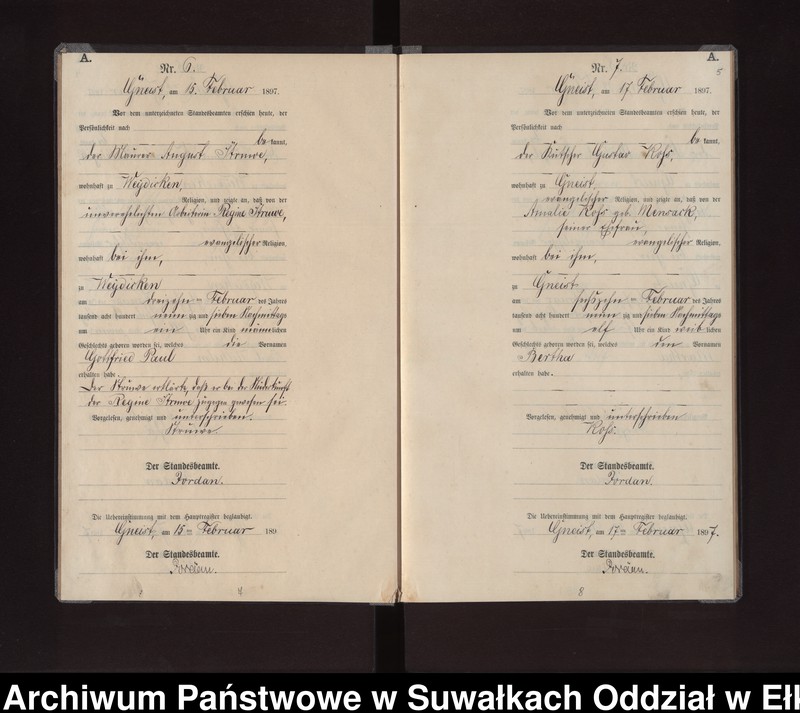 A.
Nr. 6.
Gneist, am 15. Februar 1897.
Vor dem unterzeichneten Standesbeamten erschien heute, der
Persönlichkeit nach
be kannt,
der Maurer August Struwe,
wohnhaft zu Weydicken,
Religion, und zeigte an, daß von der
unverehelichten Arbeiterin Regine Struwe,
evangelischer Religion,
wohnhaft bei ihm,
zu Weydicken
am dreizehn ten Februar des Jahres
tausend acht hundert neun zig und sieben Nachmittags
um ein Uhr ein Kind männlichen
Geschlechts geboren worden sei, welches die Vornamen
Gottfried Paul
erhalten habe.
Der Struwe erklärte, daß er bei der Niederkunft
der Regine Struwe zugegen gewesen sei.
Vorgelesen, genehmigt und unterschrieben.
Struwe.
Der Standesbeamte.
Jordan.
Die Uebereinstimmung mit dem Hauptregister beglaubigt.
Gneist, am 15 ten Februar 189
Der Standesbeamte.
Jordan.
A.
5
Nr. 7.
Gneist, am 17 Februar 1897.
Vor dem unterzeichneten Standesbeamten erschien heute, der
Persönlichkeit nach
be kannt,
der Kutscher Gustav Kohs,
wohnhaft zu Gneist,
evangelischer Religion, und zeigte an, daß von der
Amalie Kohs geb.
seiner Ehefrau,
evangelischer Religion,
wohnhaft bei ihm,
zu Gneist
am sechszehn ten Februar des Jahres
tausend acht hundert neun zig und sieben Nachmittags
um elf Uhr ein Kind weib lichen
Geschlechts geboren worden sei, welches den Vornamen
Bertha
erhalten habe.
Vorgelesen, genehmigt und unterschrieben
Kohs.
Der Standesbeamte.
Jordan.
Die Uebereinstimmung mit dem Hauptregister beglaubigt.
Gneist, am 17 ten Februar 1897.
Der Standesbeamte.
Jordan.
8
Archiwum Państwowe w Suwałkach Oddział w Ełk